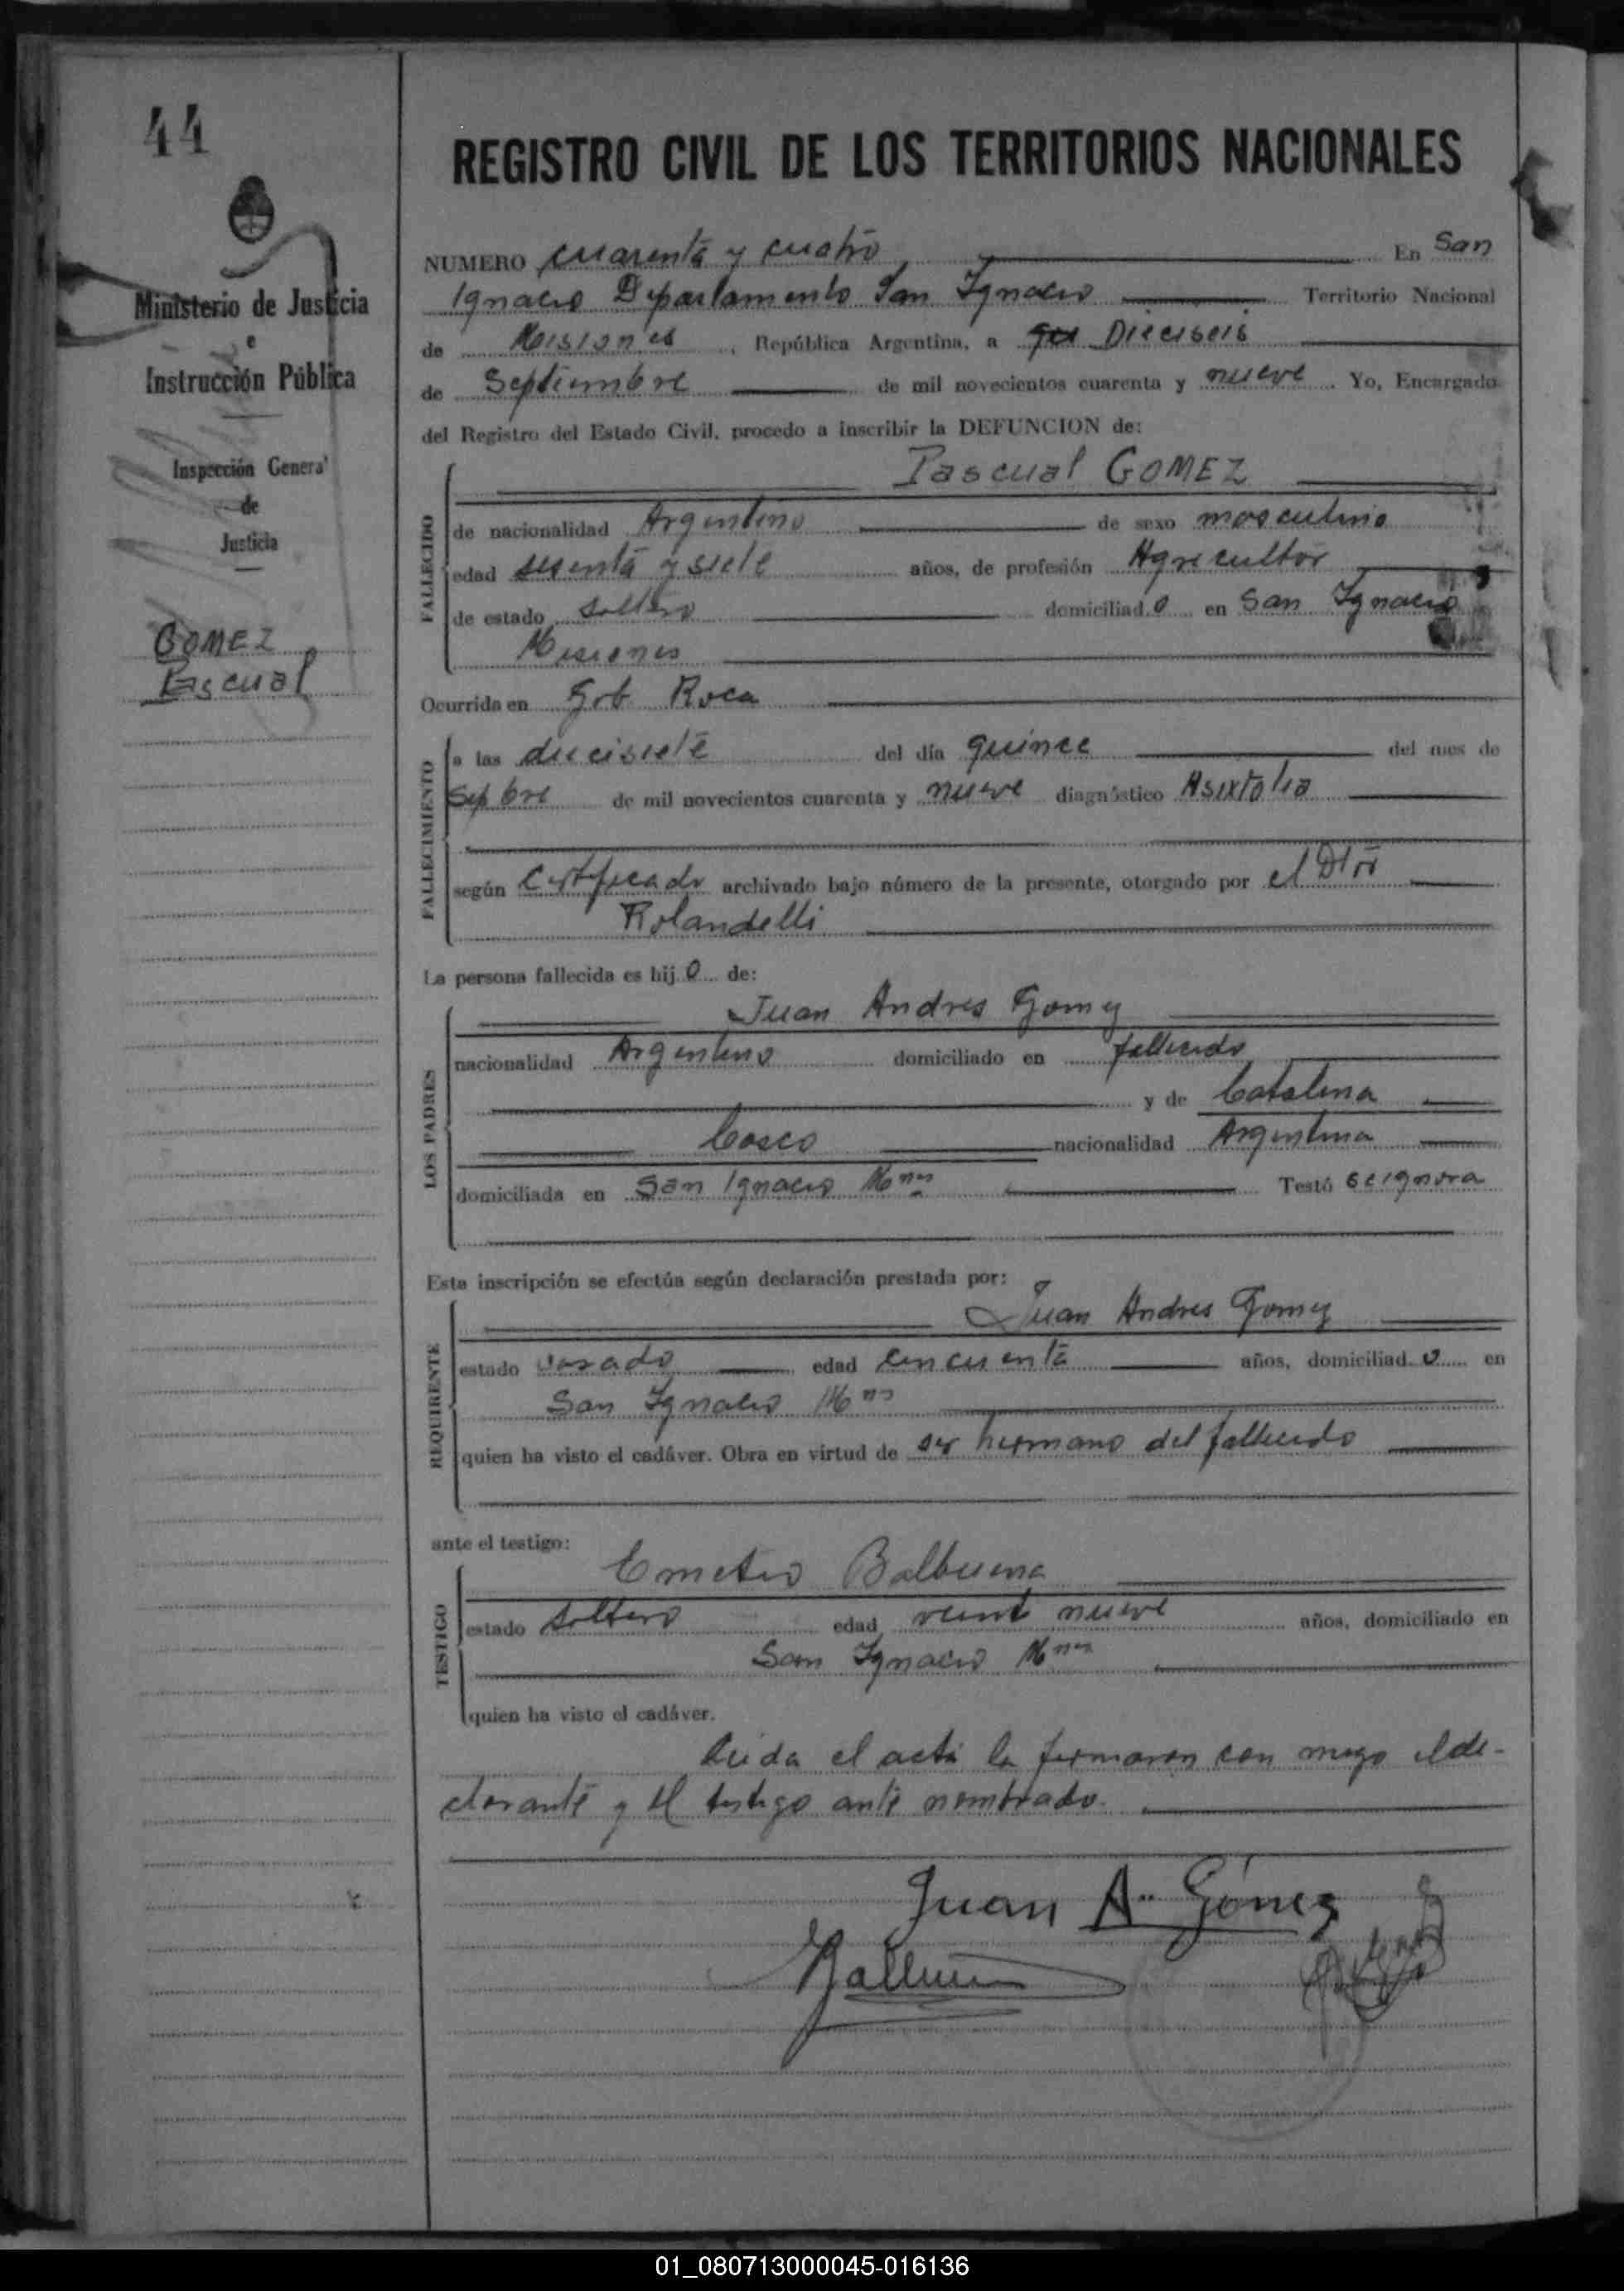 44
REGISTRO CIVIL DE LOS TERRITORIOS NACIONALES
Ministerio de Justicia
e
Instrucción Pública
Inspección General
de
Justicia
GOMEZ
Pascual
NUMERO cuarenta y cuatro En San
Ignacio Departamento San Ignacio Territorio Nacional
de Misiones, República Argentina, a Dieciseis
de Septiembre de mil novecientos cuarenta y nueve. Yo, Encargado
del Registro del Estado Civil, procedo a inscribir la DEFUNCION de:
Pascual GOMEZ
FALLECIDO
de nacionalidad Argentino de sexo masculino
edad sesenta y siete años, de profesión Agricultor
de estado soltero domiciliado en San Ignacio
Misiones
Ocurrida en Gob Roca
FALLECIMIENTO
a las diecisiete del día quince del mes de
Sepbre de mil novecientos cuarenta y nueve diagnóstico Asixtolia
según Certificado archivado bajo número de la presente, otorgado por el
Rolandelli
La persona fallecida es hijo de:
LOS PADRES
Juan Andres Gomez
nacionalidad Argentino domiciliado en fallecido
y de Catalina
Casco nacionalidad Argentina
domiciliada en San Ignacio Mnes Testó se ignora
Esta inscripción se efectúa según declaración prestada por:
REQUIRENTE
Juan Andres Gomez
estado casado edad cincuenta años, domiciliado en
San Ignacio Mnes
quien ha visto el cadáver. Obra en virtud de ser hermano del fallecido
ante el testigo:
TESTIGO
Emeterio Balbuena
estado soltero edad veinte nueve años, domiciliado en
San Ignacio Mnes
quien ha visto el cadáver.
Leida el acta la firmaron con migo el de-
clarante y el testigo ante nombrado.
Juan A Gómez
01_080713000045-016136